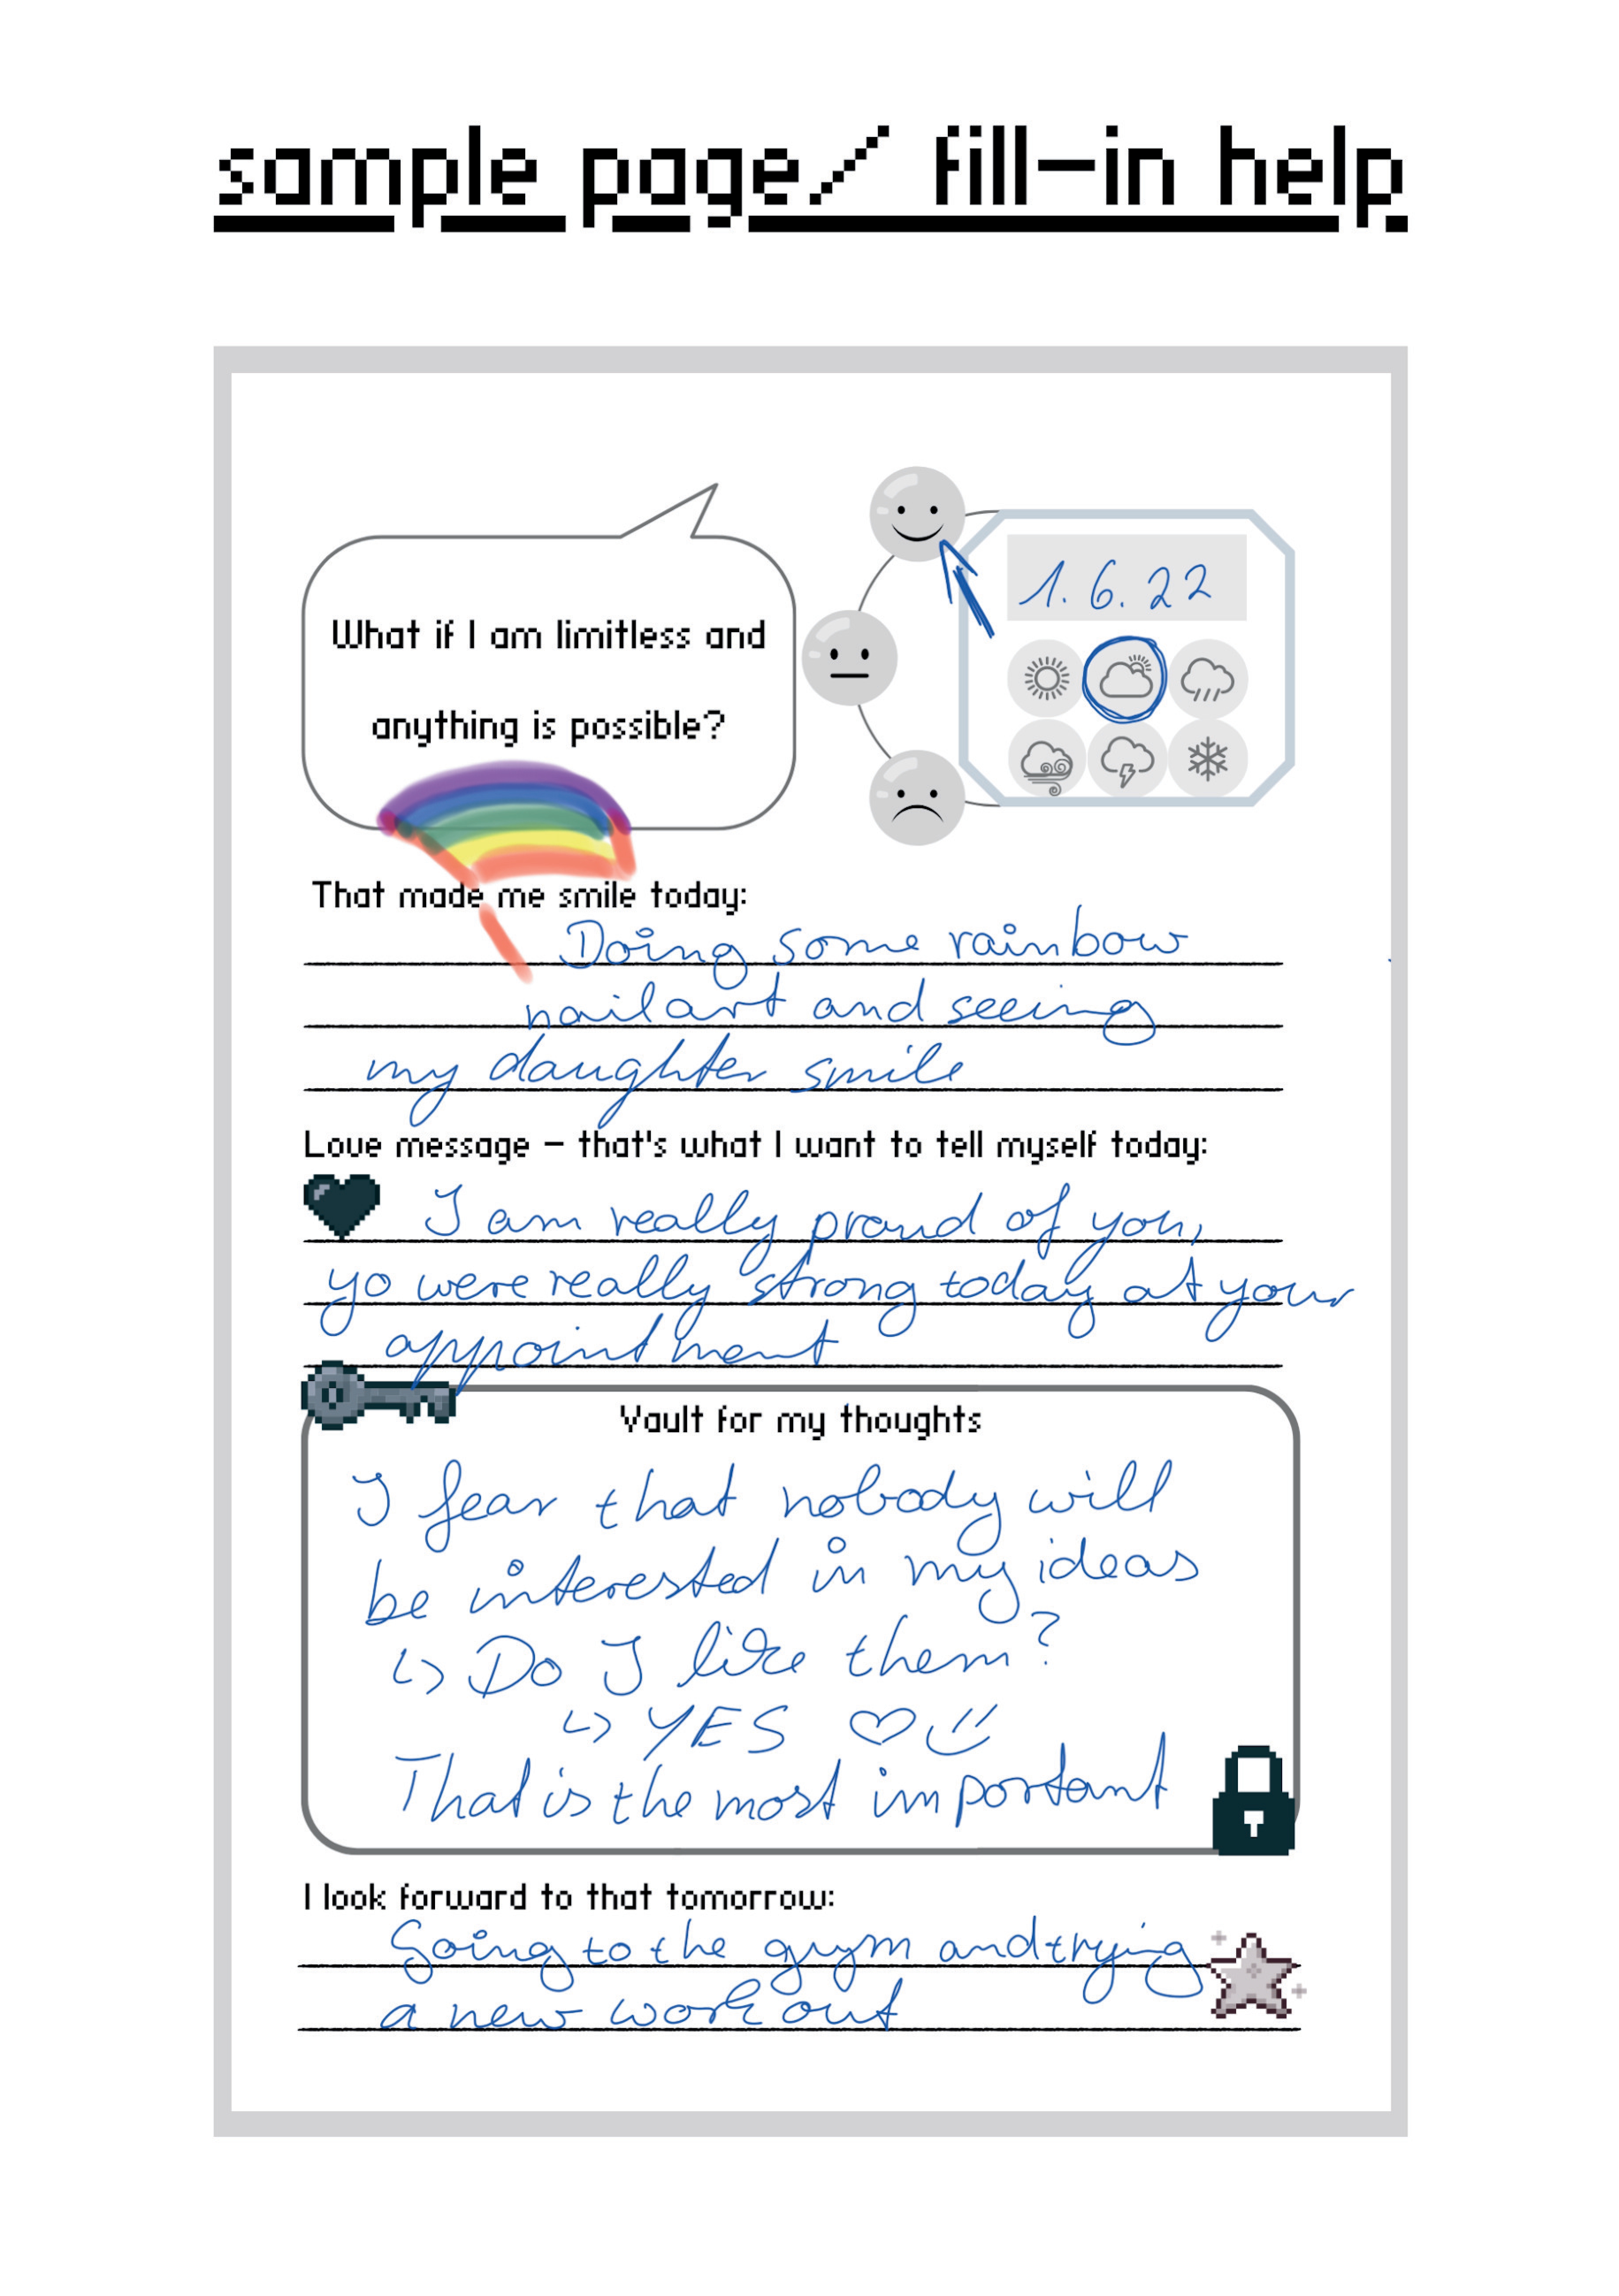 sample page/ fill-in help
What if I am limitless and
anything is possible?
1. 6. 22
That made me smile today:
Doing some rainbow
nailart and seeing
my daughter smile
Love message - that's what I want to tell myself today:
I am really proud of you,
yo were really strong today at your
appointment
Vault for my thoughts
I fear that nobody will
be interested in my ideas
↳ Do I like them?
↳ YES ♡ :)
That is the most important
I look forward to that tomorrow:
Going to the gym and trying
a new workout